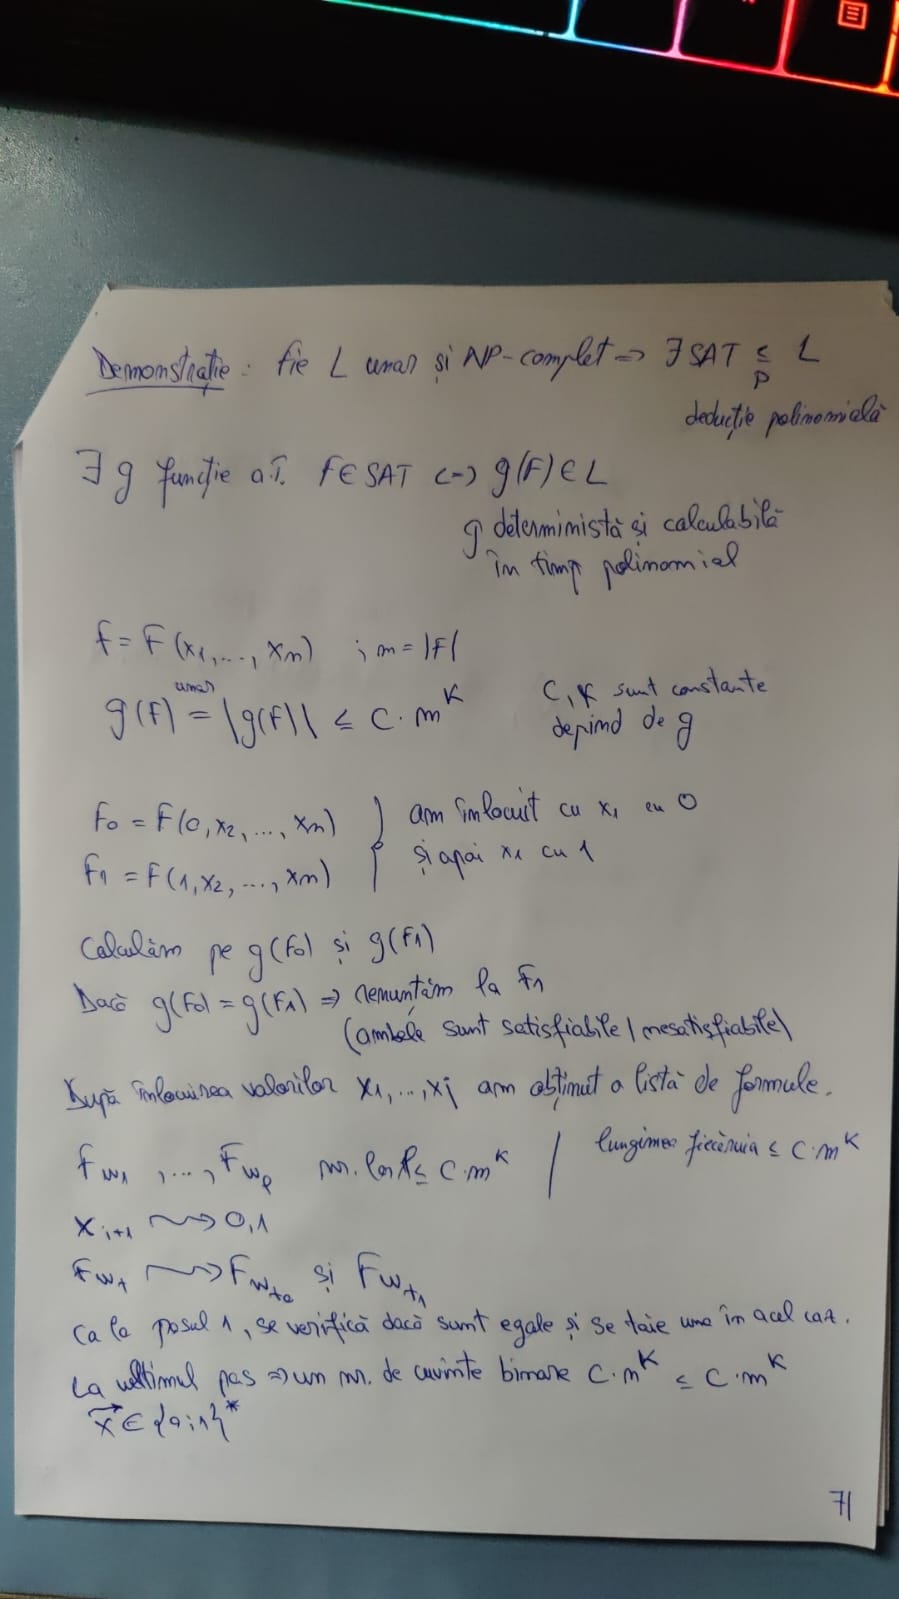 Demonstrație: Fie L unar și NP-complet => ∃ SAT ≤p L
deducție polinomială
∃ g funcție a.î. F∈SAT <-> g(F)∈L
g deterministă și calculabilă
în timp polinomial
F = F(x1,...,xn) ; m = |F|
unar
g(F) = |g(F)| ≤ C·m^K
C, K sunt constante
depind de g
F0 = F(0,x2,...,xn) } am înlocuit cu x1 cu 0
F1 = F(1,x2,...,xn) și apoi x1 cu 1
Calculăm pe g(F0) și g(F1)
Dacă g(F0) = g(F1) => renunțăm la F1
(ambele sunt satisfiabile/nesatisfiabile)
După înlocuirea valorilor x1,...,xi am obținut o listă de formule.
Fw1 ,..., Fwp nr. lor ≤ C·m^K / lungimea fiecăruia ≤ C·m^K
Xi+1 ~> 0,1
Fwt ~> Fwt0 și Fwt1
Ca la pasul 1, se verifică dacă sunt egale și se taie una în acel caz.
La ultimul pas => un nr. de cuvinte binare C·m^K ≤ C·m^K
x→ ∈ {0;1}*
71